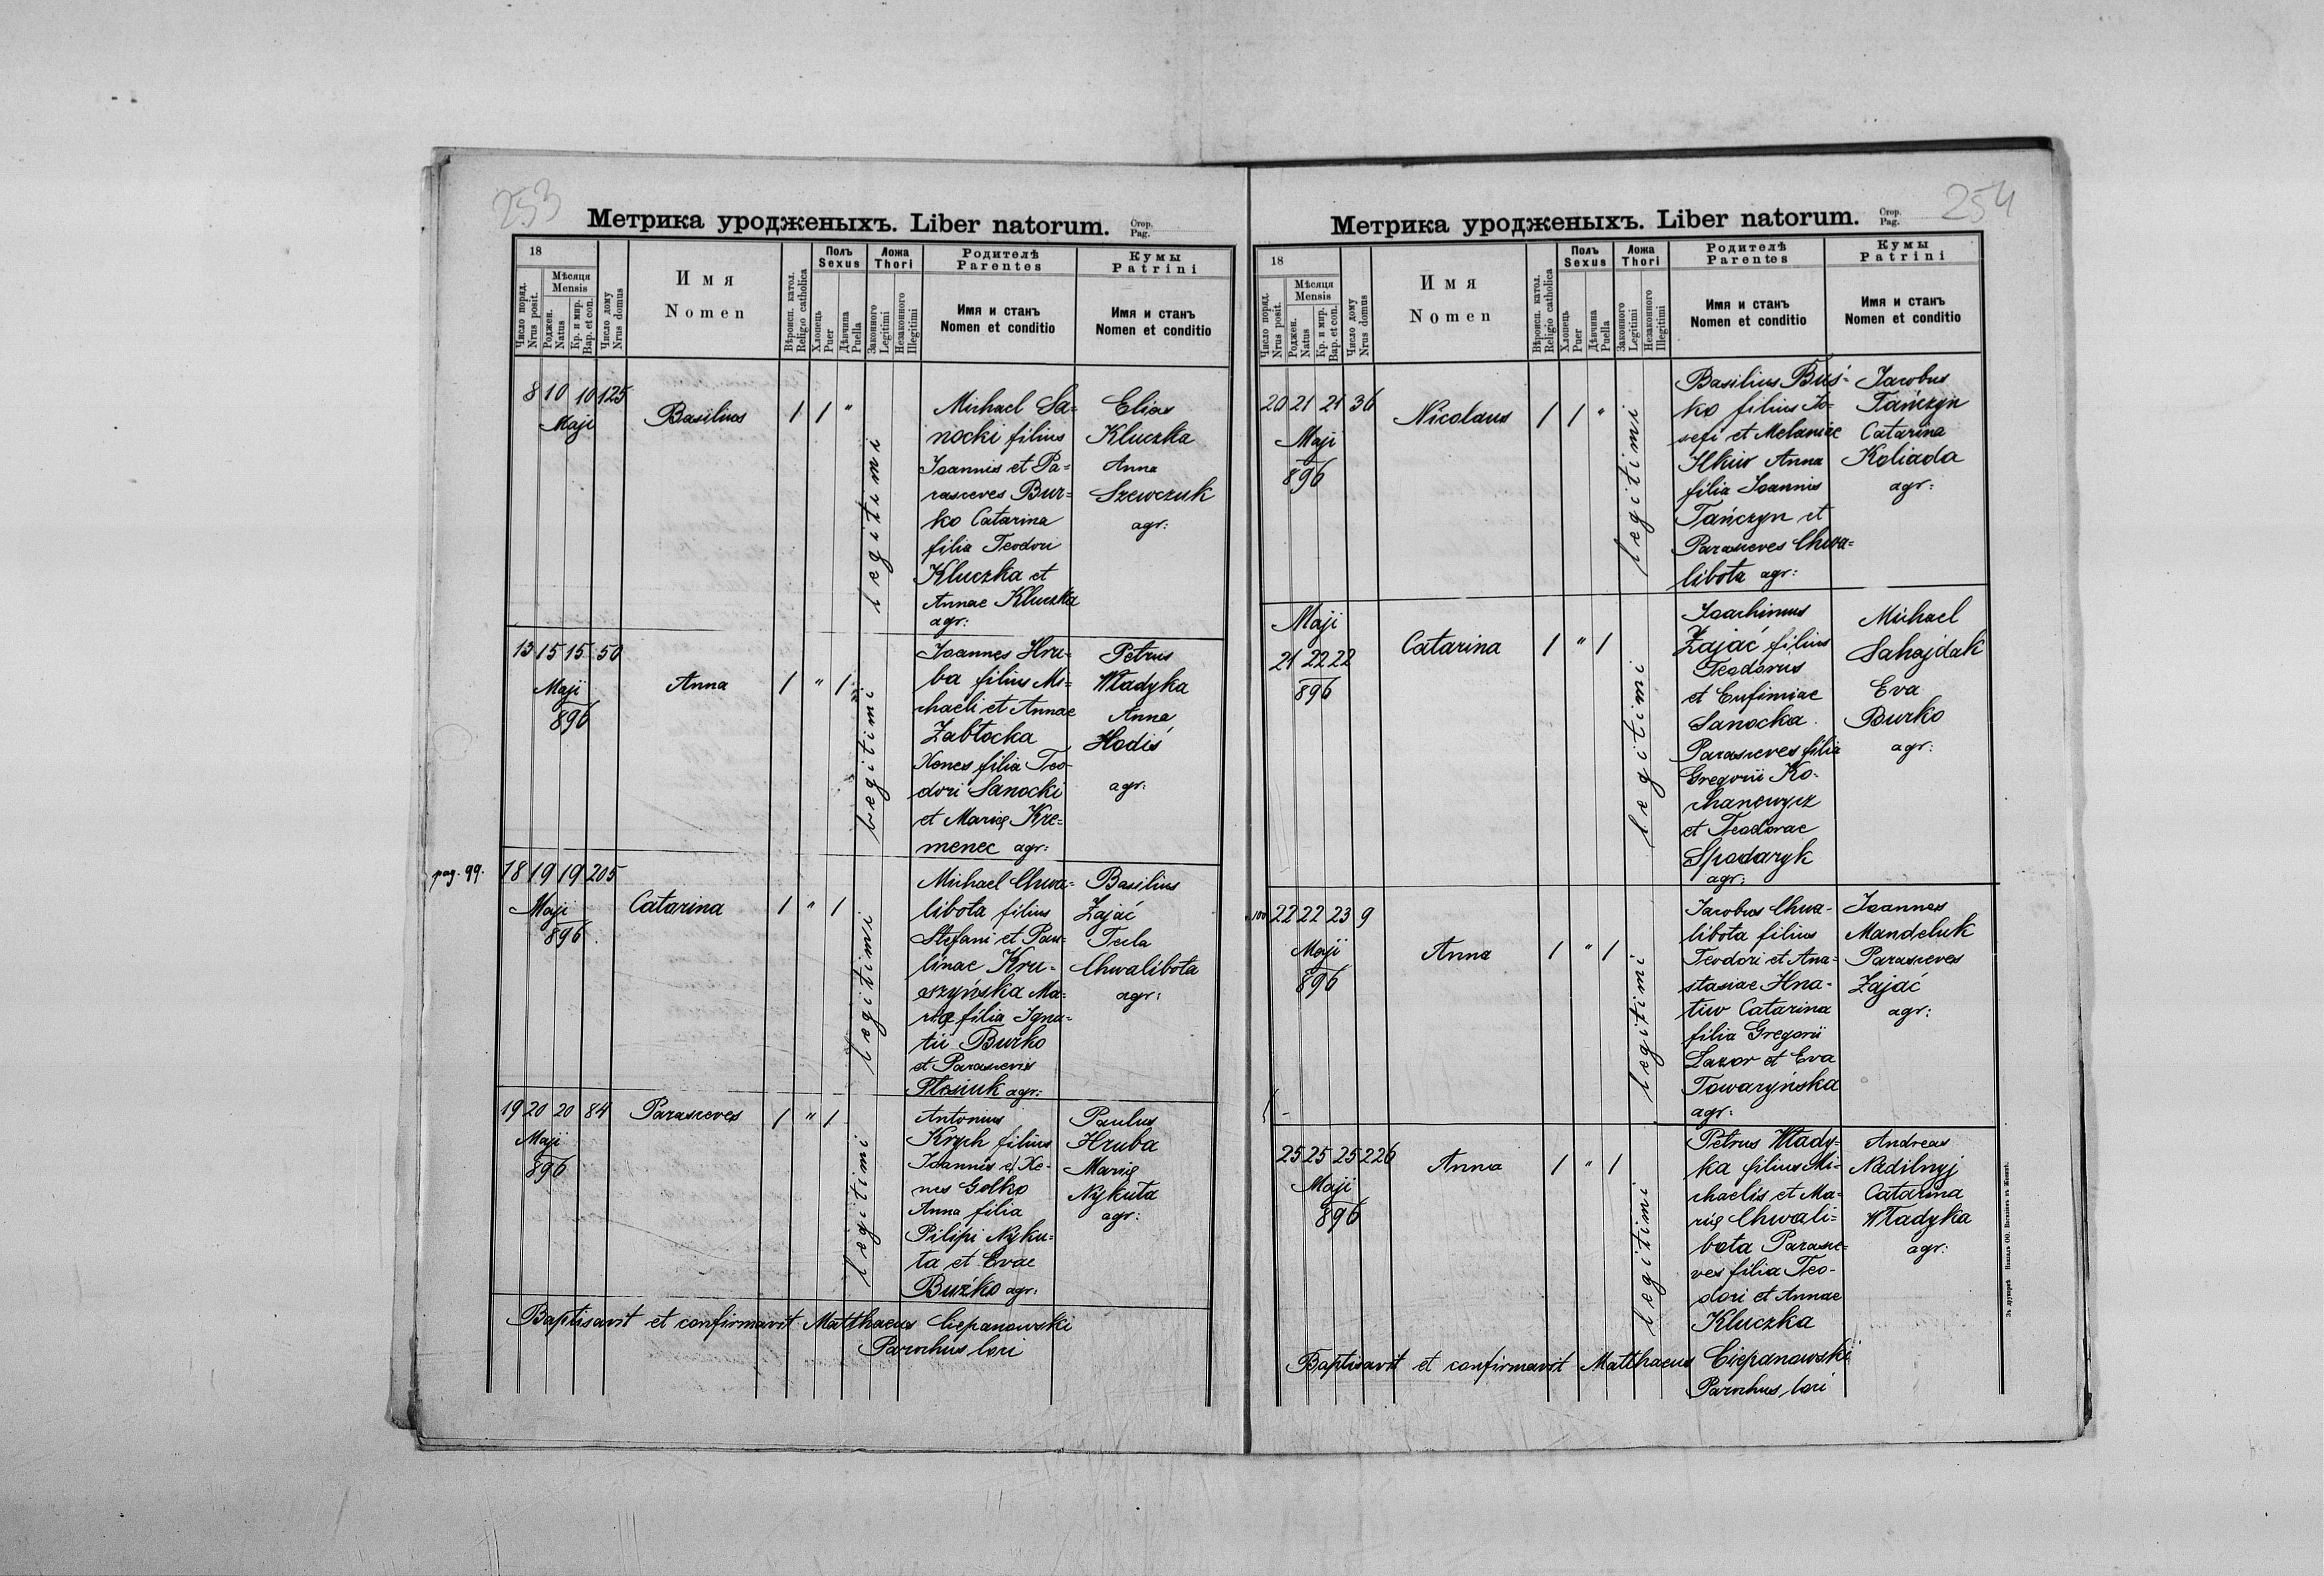 253
Метрика уродженыхъ. Liber natorum. Стор. Pag.
18
Число поряд. Nrus posit.
Мѣсяця Mensis
Роджен. Natus
Кр. и мир. Bap. et con.
Число дому Nrus domus
Имя
Nomen
Вѣроисп. катол. Religio catholica
Полъ Sexus
Хлопець Puer
Дѣвчина Puella
Ложа Thori
Законного Legitimi
Незаконного Illegitimi
Родителѣ Parentes
Имя и станъ
Nomen et conditio
Кумы Patrini
Имя и станъ
Nomen et conditio
8 10 10 125
Maji
Basilius
1 1 "
legitimi
Michael Sa=
nocki filius
Joannis et Pa=
rasceves Bur=
ko Catarina
filia Teodori
Kluczka et
Annae Kluczka
agr:
Elias
Kluczka
Anna
Szewczuk
agr:
13 15 15 50
Maji
896
Anna
1 " 1
legitimi
Joannes Hru=
ba filius Mi=
chaeli et Annae
Zabłocka
Xenes filia Teo-
dori Sanocki
et Marię Kre=
menec agr:
Petrus
Władyka
Anna
Hodiś
agr:
pag. 99.
18 19 19 205
Maji
896
Catarina
1 " 1
legitimi
Michael Chwa=
libota filius
Stefani et Pau=
linae Kru-
szyńska Ma=
rię filia Igna=
tii Burko
et Parascevis
Flesiuk agr:
Basilius
Zająć
Tecla
Chwalibota
agr:
19 20 20 84
Maji
896
Parasceves
1 " 1
legitimi
Antonius
Krych filius
Joannis et Xe-
nes Golko
Anna filia
Pilipi Nyku=
ta et Evae
Buźko agr:
Paulus
Hruba
Marię
Nykuta
agr:
Baptisavit et confirmavit Matthaeus Ciepanowski
Parochus loci
254
Метрика уродженыхъ. Liber natorum. Стор. Pag.
18
Число поряд. Nrus posit.
Мѣсяця Mensis
Роджен. Natus
Кр. и мир. Bap. et con.
Число дому Nrus domus
Имя
Nomen
Вѣроисп. катол. Religio catholica
Полъ Sexus
Хлопець Puer
Дѣвчина Puella
Ложа Thori
Законного Legitimi
Незаконного Illegitimi
Родителѣ Parentes
Имя и станъ
Nomen et conditio
Кумы Patrini
Имя и станъ
Nomen et conditio
20 21 21 36
Maji
896
Nicolaus
1 1 "
legitimi
Basilius Buś-
ko filius Jo-
sefi et Melaniae
Ilkiw Anna
filia Joannis
Tańczyn et
Parasceves Chwa=
libota agr:
Jacobus
Tańczyn
Catarina
Koliada
agr:
Maji
21 22 22
896
Catarina
1 " 1
legitimi
Joachimus
Zająć filius
Teodorus
et Eufimiae
Sanocka
Parasceves filia
Gregorii Ko-
chanewycz
et Teodorae
Spodaryk
agr:
Michael
Sahajdak
Eva
Burko
agr:
100
22 22 23 9
Maji
896
Anna
1 " 1
legitimi
Jacobus Chwa-
libota filius
Teodori et Ana=
stasiae Hna-
tiw Catarina
filia Gregorii
Lazor et Eva
Towaryńska
agr:
Joannes
Mandeluk
Parasceves
Zająć
agr:
25 25 25 226
Maji
896
Anna
1 " 1
legitimi
Petrus Włady=
ka filius Mi-
chaelis et Ma=
rię Chwali=
bota Parasce=
ves filia Teo-
dori et Annae
Kluczka
Andreas
Nedilnyj
Catarina
Władyka
agr:
Baptisavit et confirmavit Matthaeus Ciepanowski
Parochus loci